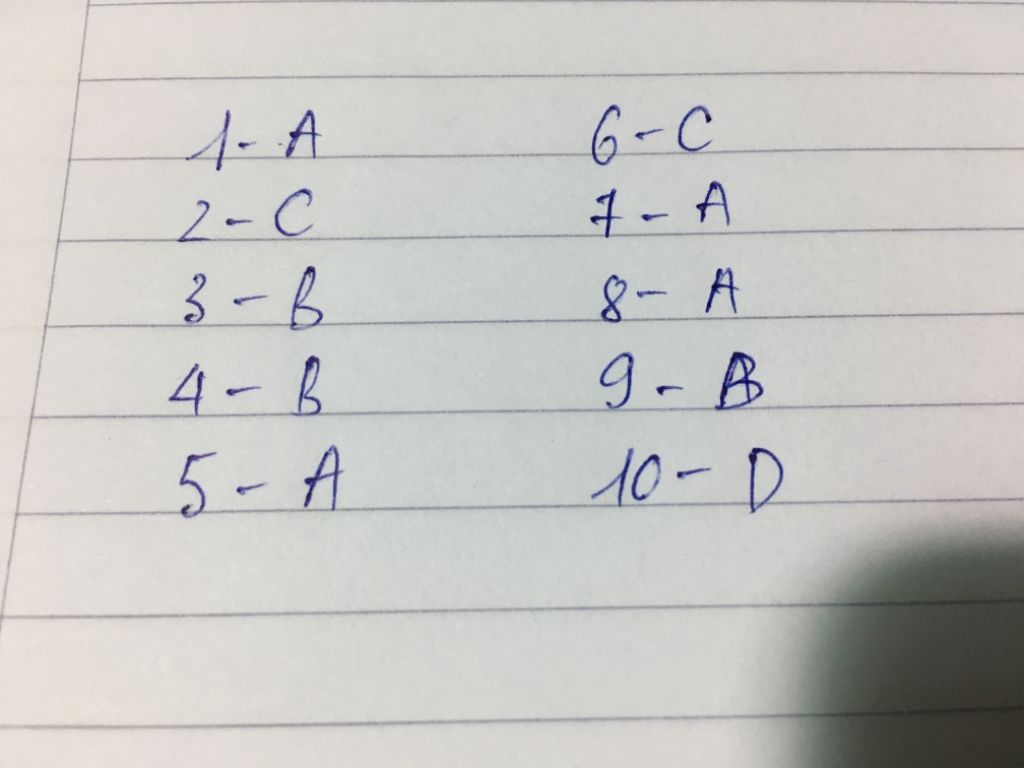 1- A
2 - C
3 - B
4 - B
5 - A
6 - C
7 - A
8 - A
9 - B
10 - D